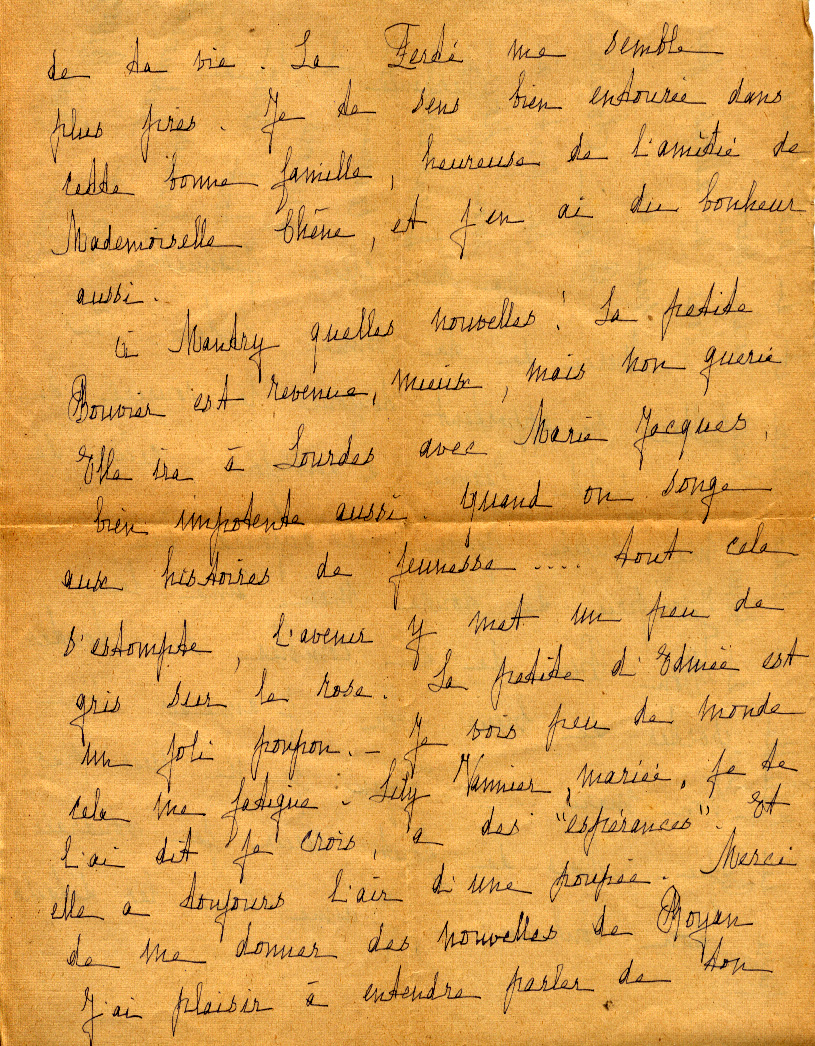 de ta vie. La Ferté me semble
plus près. Je te sens bien entourée dans
cette bonne famille, heureuse de l'amitié de
Mademoiselle Chêne, et j'en ai du bonheur
aussi.
à Mantry quelles nouvelles! La petite
Bouvier est revenue, mieux, mais non guerie
Elle ira à Lourdes avec Marie Jacques,
bien impotente aussi. Quand on songe
aux histoires de jeunesse .... tout cela
s'estompte, l'avenir y met un peu de
gris sur le rose. La petite d'Edmée est
un joli poupon. - Je vois peu de monde
cela me fatigue. Lily Vannier, mariée, je te
l'ai dit je crois, a des "espérances". Et
elle a toujours l'air d'une poupée. Merci
de me donner des nouvelles de Royan
J'ai plaisir à entendre parler de ton